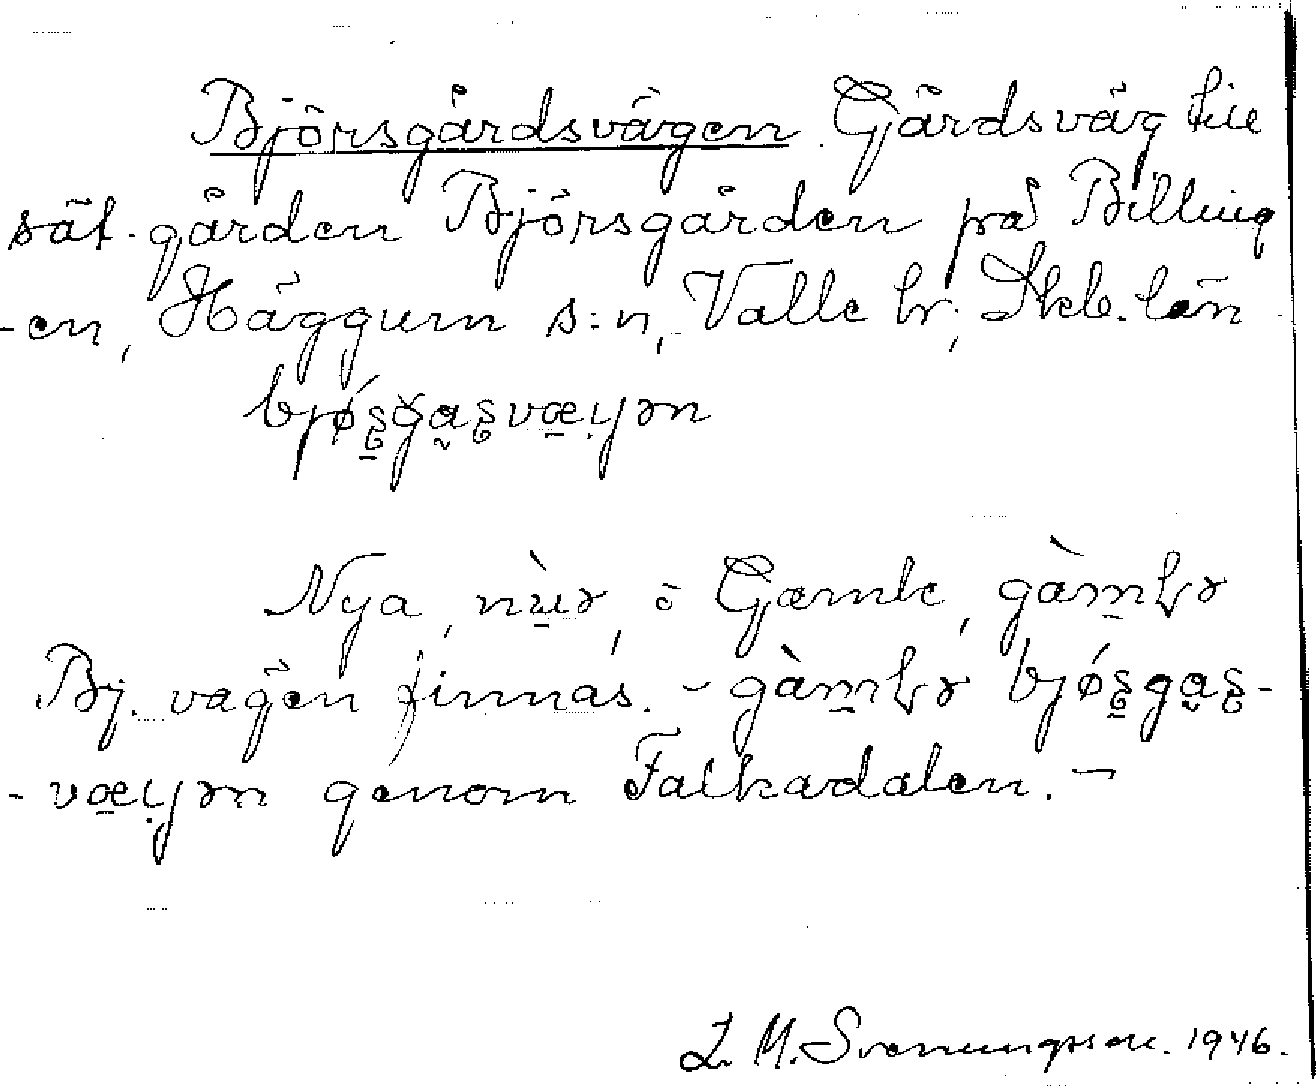 Björsgårdsvägen. Gårdsväg till
sät.gården Björsgården på Billing
-en, Häggum s:n, Valle hr; Skb. län
bjǿʂgaʂvæɣən
Nya, nùə, o Gamle, gàmɫə
Bj. vägen finnas. - gàmɫə bjǿʂgaʂ-
-væɣən genom Falkadalen. -
L. M. Svenungsson. 1946.